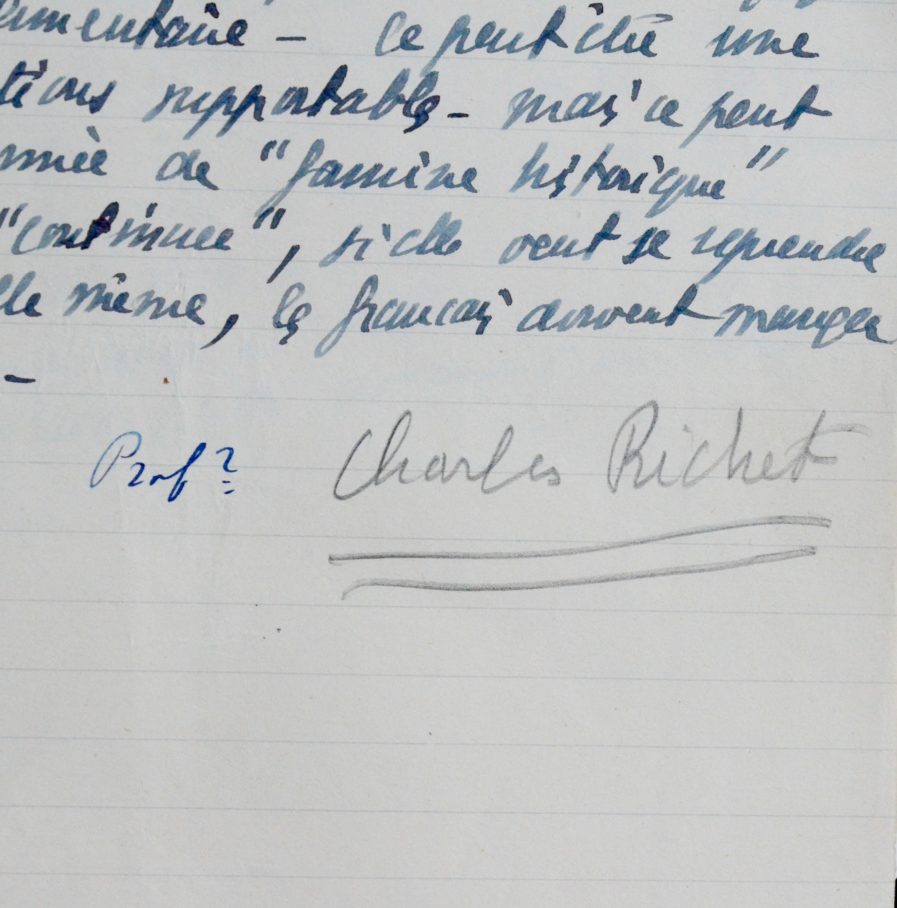 limentaire - ce peut être une
tions supportables - mais ce peut
nnée de "famine historique"
"continuer", si elle veut se reprendre
lle même, les français doivent manger
-
Prof? Charles Richet